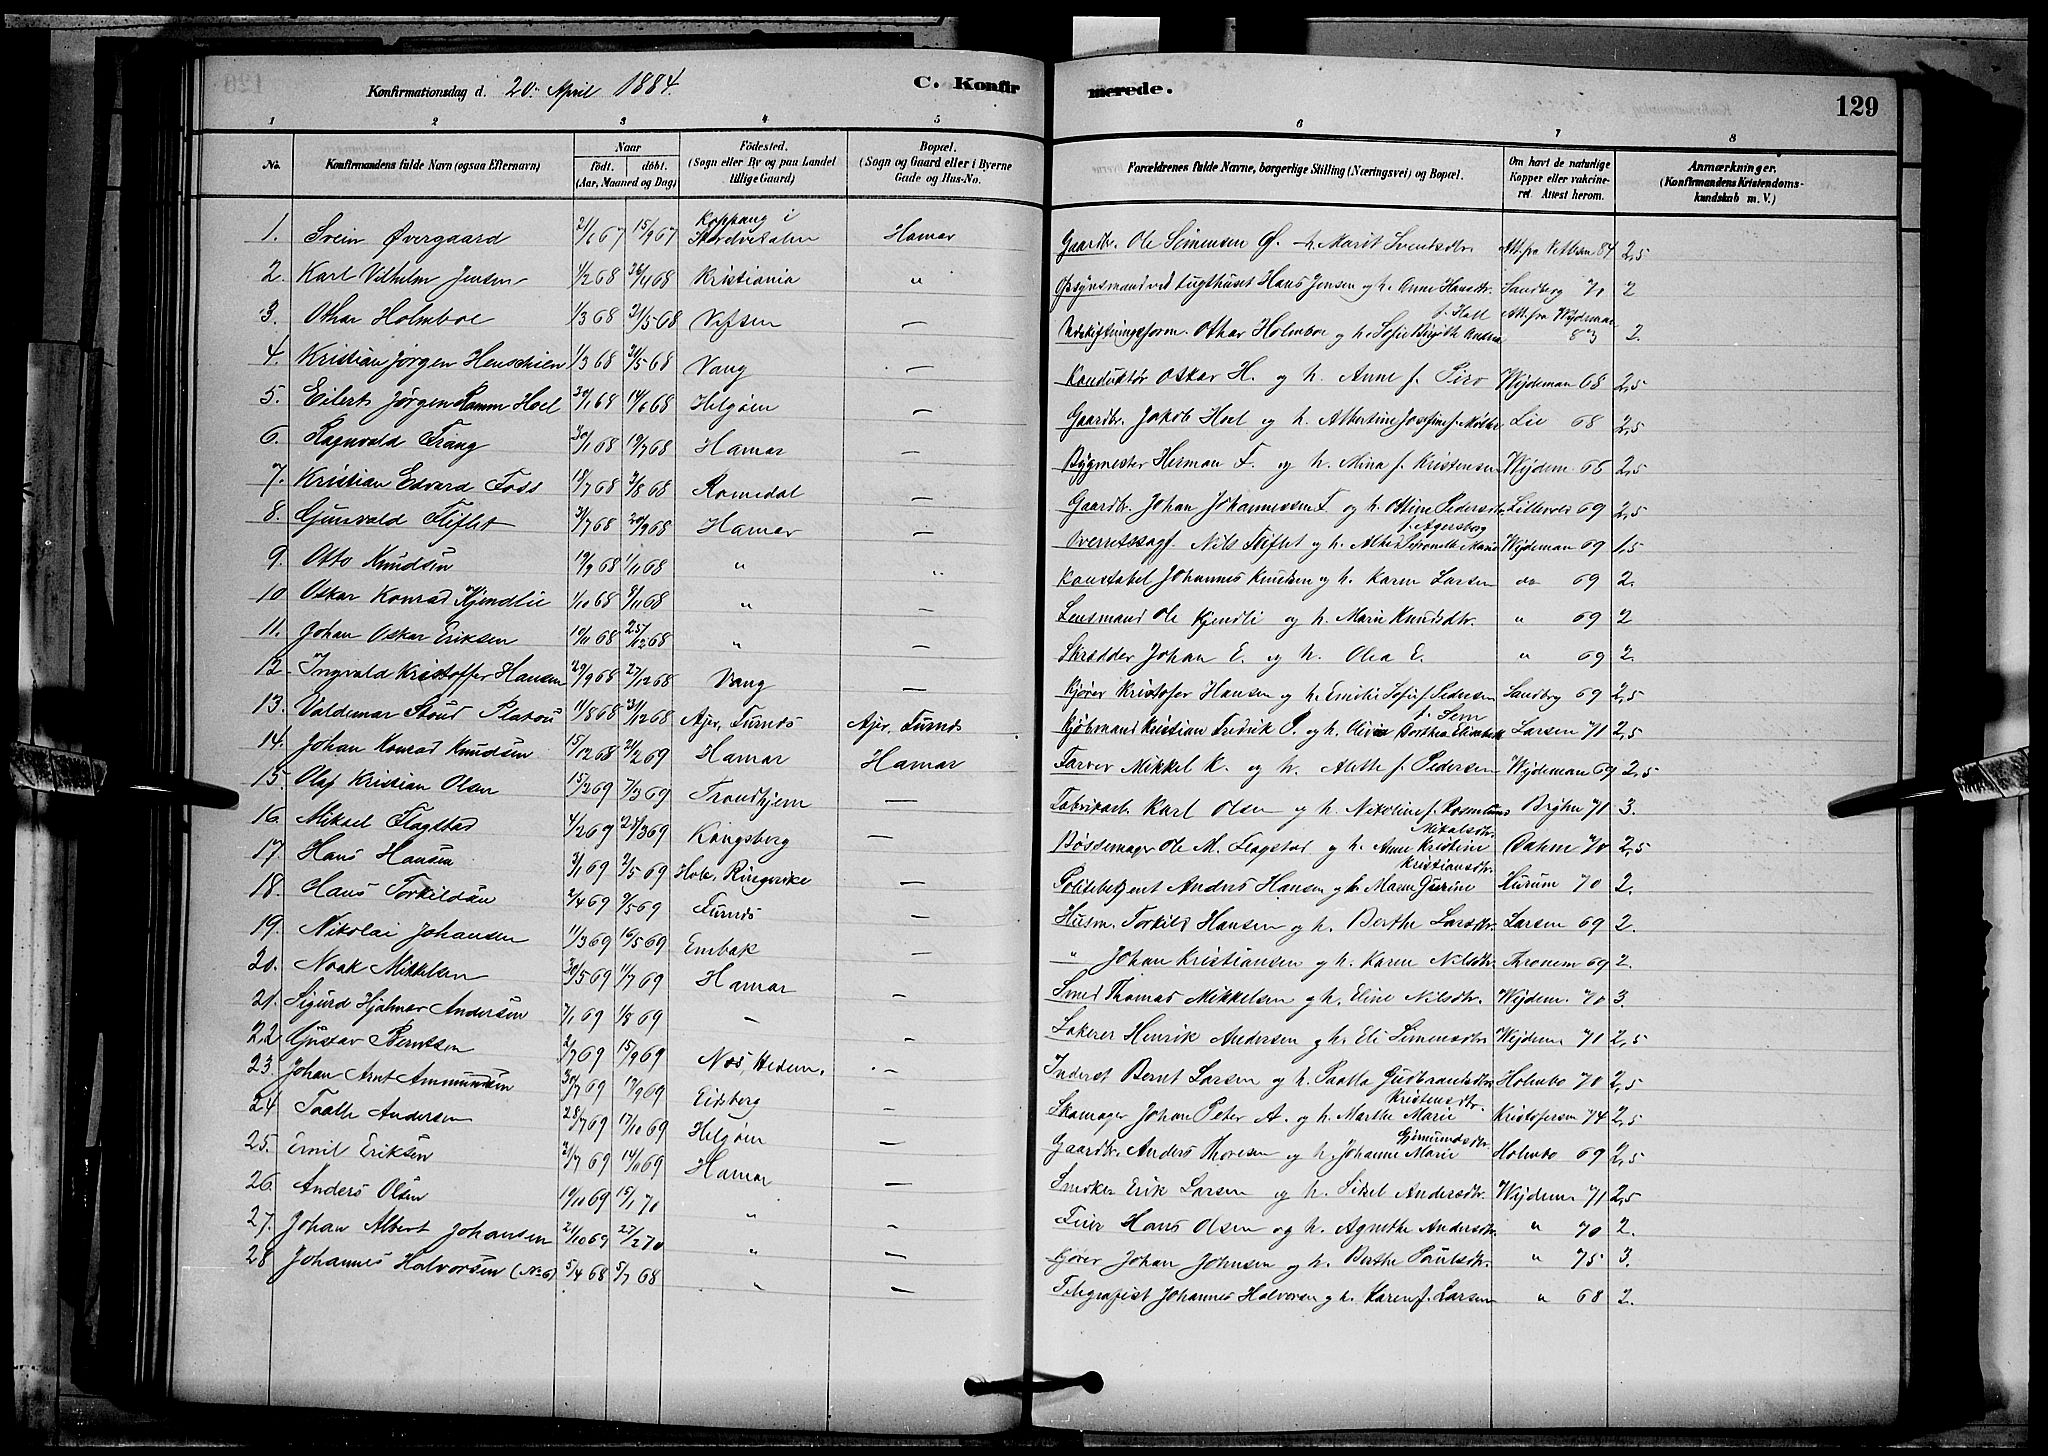 Konfirmationsdag d. 20. April 1884.
C. Konfirmerede.
129
1 2 3 4 5 6 7 8
No. Konfirmandens fulde Navn (ogsaa Efternavn) Naar Født. døbt. (Aar, Maaned og Dag) Fødested. (Sogn eller By og paa Landet tillige Gaard) Bopæl. (Sogn og Gaard eller i Byerne Gade og Hus-No. Forældrenes fulde Navne, borgerlige Stilling (Næringsvei) og Bopæl. Om havt de naturlige Kopper eller vakcineret. Attest herom. Anmærkninger. (Konfirmandens Kristendomskundskab m. V.)
1. Svein Øvergaard 2/1 67 15/9 67 Koppang i Hamar Gaardbr. Ole Simensen Ø. h. Marit Svendsdtr. 84 2,5
2. Karl Vilhelm Jensen 1/2 68 26/4 68 Kristiania " Opsynsmand ved Tugthuset Hans Jensen og h. Anne Hansdtr. Sandberg 70 2
3. Othar Holmboe 1/3 68 31/5 68 Vefsen — Udskiftningsform. Othar Holmboe og h. Sofie Birgitte Andrea Att. fra Wejdeman 83 2.
4. Kristian Jørgen Henschien 1/3 68 31/5 68 Vang — Konduktør Oskar H. og h. Anne f. Piro Wejdeman 68 2,5
5. Eilert Jørgen Ramm Hoel 30/1 68 14/6 68 Helgøen — Gaardbr. Jakob Hoel og h. Albertine Josefine f. Møller Lie 68 2,5
6. Ragnvald Frang 30/1 68 19/7 68 Hamar — Bygmester Herman F. og h. Mina f. Kristensen Wejdem. 68 2,5
7. Kristian Edvard Foss 18/7 68 2/8 68 Romedal — Gaardbr. Johan Johannessen F. og h. Oline Pedersdtr. 69 2,5
8. Gunvald Fliflet 31/7 68 20/9 68 Hamar — Overretssagf. Nils Fliflet og h. Petronelle Marie f. Agersborg Wejdeman 69 1,5
9. Otto Knudsen 19/9 68 1/11 68 " " Konstabel Johannes Knudsen og h. Karen Larsen do 69 2.
10 Oskar Konrad Kjendlie 1/10 68 8/11 68 " — Lensmand Ole Kjendli og h. Marie Knudsdtr. " 69 2
11. Johan Oskar Eriksen 10/11 68 25/12 68 " — Skrædder Johan E. og h. Olea E. " 69 2.
12. Ingvald Kristoffer Hansen 29/9 68 27/12 68 Vang — Kjører Kristofer Hansen og h. Emilie Sofie f. Pedersen Sandberg 69 2,5
13. Valdemar Stoud Platou 11/8 68 31/12 68 Ajer, Furnes Ajer, Furnes Kjøbmand Kristian Fredrik P. og h. Olivia Dorthea Elisabeth f. Sem Larsen 71 2,5
14. Johan Konrad Knudsen 15/12 68 21/2 69 Hamar Hamar Farver Mikkel K. og h. Anthe f. Pedersen Wejdeman 69 2,5
15. Olaf Kristian Olsen 15/2 69 7/3 69 Trondhjem — Fabrikarb. Karl Olsen og h. Nikoline f. Rasmussen Brøhn 71 3.
16. Mikael Flagstad 4/2 69 28/3 69 Kongsberg — Bøssemager Ole M. Flagstad og h. Anne Kristine Mikalsdtr. Dahm 70 2,5
17. Hans Hansen 3/1 69 2/5 69 Hole, Ringerike — Politibetjent Anders Hansen og h. Maren Gurine Kristiansdtr. Hurum 70 2.
18. Hans Torkildsen 2/4 69 9/5 69 Furnes — Husm. Torkild Hansen og h. Berthe Larsdtr. Larsen 69 2.
19. Nikolai Johansen 11/3 69 16/5 69 Enebak — " Johan Kristiansen og h. Karen Nilsdtr. Thronem 69 2.
20. Noak Mikkelsen 30/5 69 11/7 69 Hamar — Smed Thomas Mikkelsen og h. Eline Nilsdtr. Wejdem. 70 3.
21. Sigurd Hjalmar Andersen 7/1 69 1/8 69 — — Lakerer Henrik Andersen og h. Eli Simensdtr. Wejdem 71 2,5
22. Gustav Berntsen 2/7 69 15/9 69 Næs, Hedem. — Inderst Bernt Larsen og h. Gudbrandsdtr. Holmbo 70 2,5
23. Johan Arnt Ammundsen 30/7 69 19/9 69 Eidsberg — Skomager Johan Peter A. og h. Marthe Marie Kristensdtr. Kristofersen 74 2,5
24. Taalle Andersen 28/7 69 17/10 69 Helgøen — Gaardbr. Anders Thoresen og h. Johanne Marie Gjemundsdtr. Holmbo 69 2,5
25. Emil Eriksen 31/7 69 14/11 69 Hamar — Snedker Erik Larsen og h. Sidsel Andersdtr. Wejdem 71 2,5
26. Anders Olsen 19/10 69 15/1 70 " — Feier Hans Olsen og h. Agnethe Andersdtr. " 70 2.
27. Johan Albert Johansen 21/10 69 27/2 70 " — Kjører Johan Johnsen og h. Berthe Paulsdtr. " 75 3.
28 Johannes Halvorsen (No. 6) 5/4 68 5/7 68 " — Telegrafist Johannes Halvorsen og h. Karen f. Larsen " 68 2.